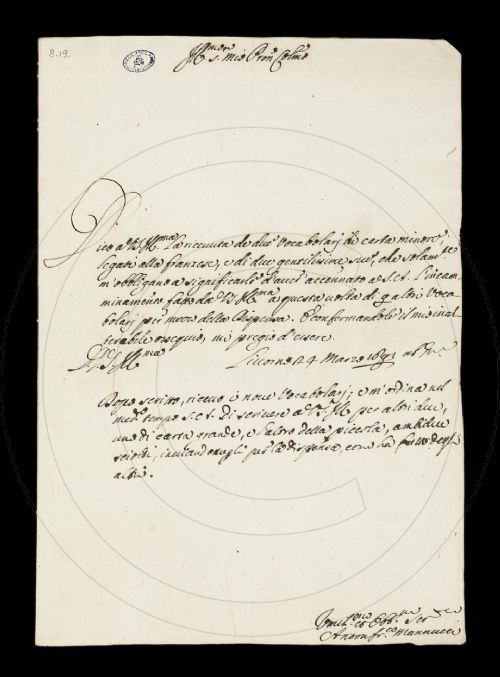 8.19.
Ill.mo S. mio Pron. Colmo
Dico a V.S. Ill.ma la ricevuta de due Vocabolarj di carta minore,
legati alla franzese, e di due gentilissime sue, che solam.te
m'obbligano a significarle d'aver accennato a S.A. l'incam
minamento fatto da V.S. Ill.ma a questa volta di altri Voca
bolarj per mezzo della dispensa. E confermandole il mio inal
terabile ossequio, mi pregio d'essere
D. V.S. Ill.ma Livorno 4 Marzo 1691
Dopo scritto, ricevo i nove Vocabolarj; e m'ordina nel
med.o tempo S.A. di scrivere a V.S. Ill. per altri due,
uno di carta grande, e l'altro della piccola, ambidue
sciolti, inviandomegli per la dispensa, come ha fatto degli
altri.
Umil.mo et Obb. Ser.
Anton fr.co Mannucci